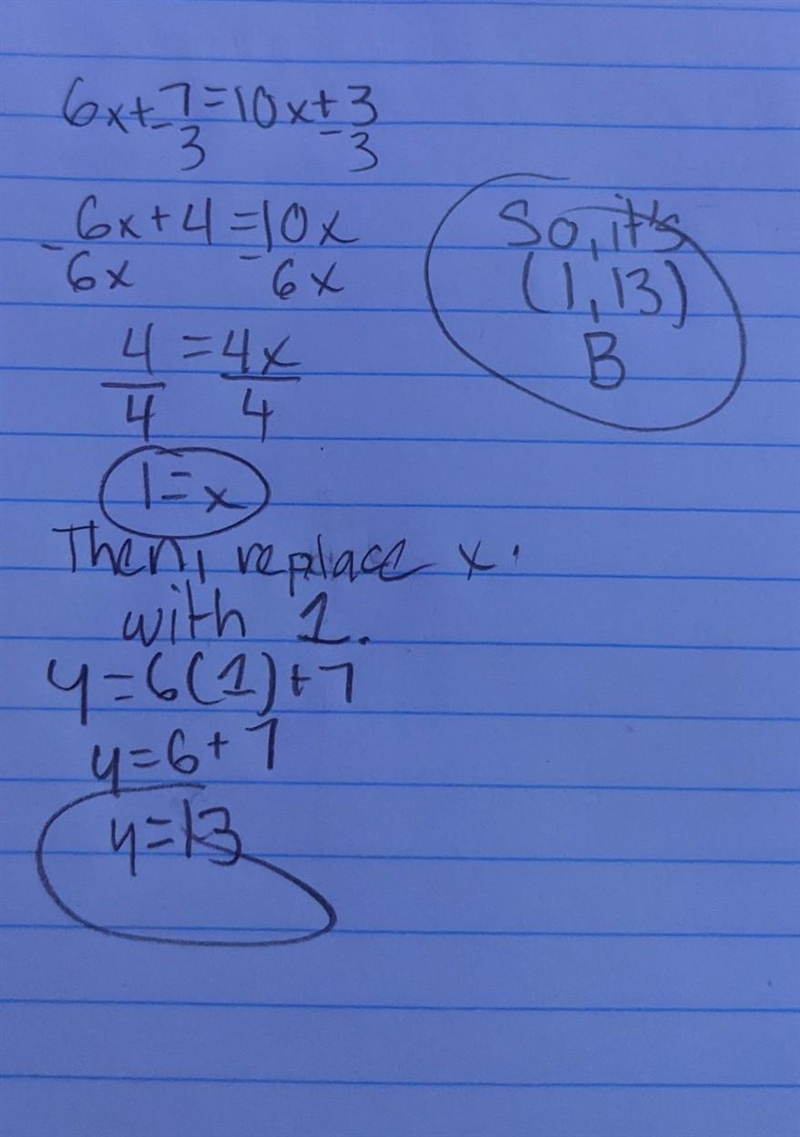 6x+7=10x+3
-3 -3
6x+4=10x
-6x -6x
4=4x
4 4
1=x
Then, replace x.
with 1.
y=6(1)+7
y=6+7
y=13
So, it's
(1,13)
B